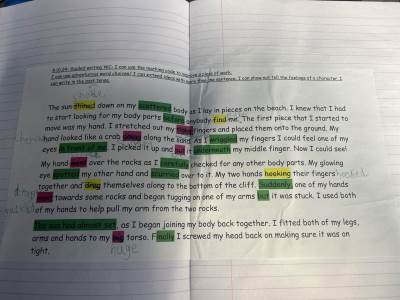 8.10.24- Guided writing WC: I can use the marking code to improve a piece of work.
I can use adventurous word choices/ I can extend ideas with more than one sentence. I can show not tell the feelings of a character. I
can write in the past tense.
The sun shined down on my scattered body as I lay in pieces on the beach. I knew that I had
to start looking for my body parts before anybody find me. The first piece that I started to
move was my hand. I stretched out my fingers and placed them onto the ground. My
hand looked like a crab along the sand. As I wriggled my fingers I could feel one of my
eyes in front of me. I picked it up and put it underneath my middle finger. Now I could see!
My hand over the rocks as I carefully checked for any other body parts. My glowing
eye spotted my other hand and scurried over to it. My two hands hooking their fingers hooked
together and drag themselves along to the bottom of the cliff. Suddenly, one of my hands
towards some rocks and began tugging on one of my arms but it was stuck. I used both
of my hands to help pull my arm from the two rocks.
The sun had almost set, as I began joining my body back together. I fitted both of my legs,
arms and hands to my big torso. Finally I screwed my head back on making sure it was on
tight.
huge